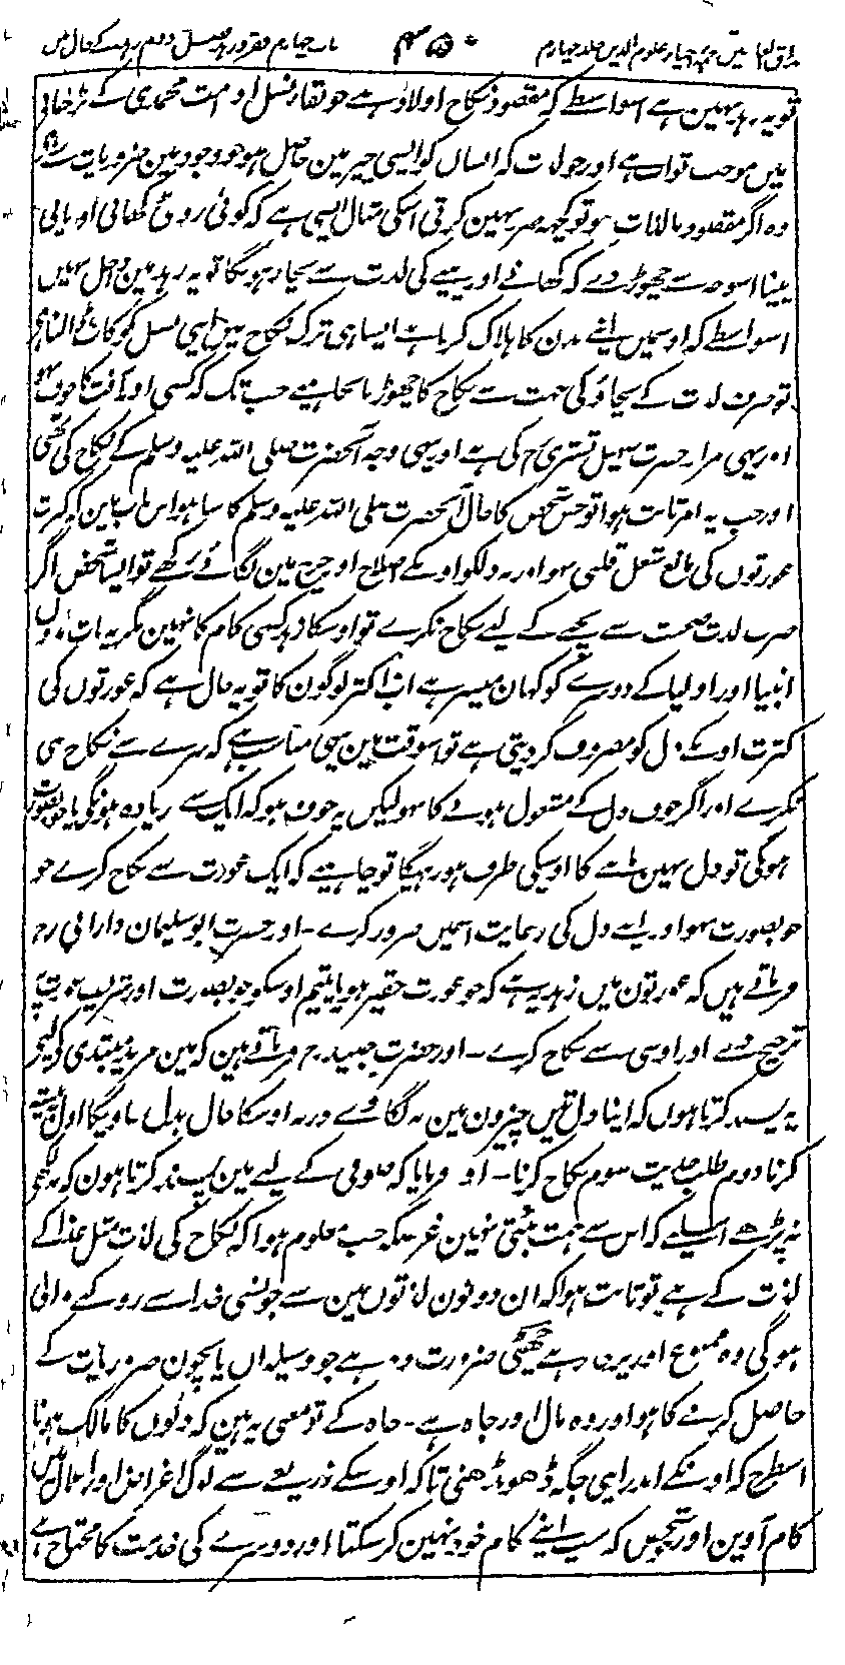 مذاق العارفین ترجمہ احیاء علوم الدین جلد چہارم باب چہارم فقر و زہد فصل دوم زہد کے حال میں
تو یہ زہد نہین ہے اسواسطے کہ مقصود نکاح اولاد ہے جو بقاء نسل اور امت محمدی کے بڑھانے
میں موجب ثواب ہے اور جو لذت کہ انسان کو ایسی چیز مین حاصل ہو جو وجود مین ضروریات سے
وہ اگر مقصود بالذات نہو تو کچھ ضرر نہین کرتی اسکی مثال ایسی ہے کہ کوئی روٹی کھانی اور پانی
پینا اسوجہ سے چھوڑ دے کہ کھانے اور پینے کی لذت سے بچاؤ ہوگا تو یہ زہد مین داخل نہیں
اسواسطے کہ اوسمیں اپنے بدن کا ہلاک کرنا ہے ایسا ہی ترک نکاح میں اپنی نسل کو کاٹ ڈالنا ہے
تو صرف لذت کے بچاؤ کی جہت سے نکاح کا چھوڑنا نچاہیے جب تک کہ کسی اور آفت کا خوف نہو
اور یہی مراد حضرت سہیل تستری رح کی ہے اور یہی وجہ آنحضرت صلی اللہ علیہ وسلم کے نکاح کی تھی
اور جب یہ امر ثابت ہوا تو جس شخص کا حال آنحضرت صلی اللہ علیہ وسلم کا سا ہو اس باب مین کہ کثرت
عورتوں کی مانع شغل قلبی نہو اور نہ دلکو اونکے اصلاح اور خرچ مین لگائے رکھے تو ایسا شخص اگر
صرف لذت صحبت سے بچنے کے لیے نکاح نکرے تو اوسکا زہد کسی کام کا نہین مگر یہ بات بدون
انبیا اور اولیا کے دوسرے کو کہان میسر ہے اب اکثر لوگون کا تو یہ حال ہے کہ عورتوں کی
کثرت اونکے دل کو مصروف کر دیتی ہے تو اسوقت مین یہی مناسب ہے کہ سرے سے نکاح ہی
نکرے اور اگر خوف دل کے مشغول ہونے کا نہو لیکن یہ خوف ہو کہ ایک سے زیادہ ہونگی یا خوبصورت
ہوگی تو دل یہین اسے کا اوسیکی طرف ہو رہیگا تو چاہیے کہ ایک عورت سے نکاح کرے جو
خوبصورت نہو اور اپنے دل کی رعایت اسمیں ضرور کرے - اور حضرت ابو سلیمان دارانی رح
فرماتے ہیں کہ عورتون میں زہد یہ ہے کہ جو عورت حقیر ہو یا یتیم اوسکو خوبصورت اور شریف عورت پر
ترجیح دے اور اوسی سے نکاح کرے - اور حضرت جنید رح فرماتے ہین کہ مین مرید مبتدی کو لیے
یہ پسند کرتا ہوں کہ اپنا دل تین چیزون مین نہ لگاوے ورنہ اوسکا حال بدل جاویگا اول پیشہ
کرنا دوم طلب حدیث سوم نکاح کرنا - اور فرمایا کہ صوفی کے لیے مین پسند کرتا ہون کہ نہ لکھے
نہ پڑھے اسلیے کہ اس سے ہمت بٹتی نہین غرضکہ جب معلوم ہوا کہ نکاح کی لذت مثل غذا کے
لذت کے ہے تو ثابت ہوا کہ ان دونون لذتوں مین سے جونسی خدا سے روکنے والی
ہوگی وہ ممنوع اور بری ہے چھٹی ضرورت وہ ہے جو وسیلہ ان پانچون ضروریات کے
حاصل کرنے کا ہو اور وہ مال اور جاہ ہے - جاہ کے تو معنی یہ ہین کہ دلوں کا مالک ہونا
اسطرح کہ اونکے اندر اپنی جگہ ڈھونڈھنی تاکہ اوسکے ذریعے سے لوگ اغراض اور اعمال میں
کام آوین اور جو شخص کہ سب اپنے کام خود نہین کر سکتا اور دوسرے کی خدمت کا محتاج ہے